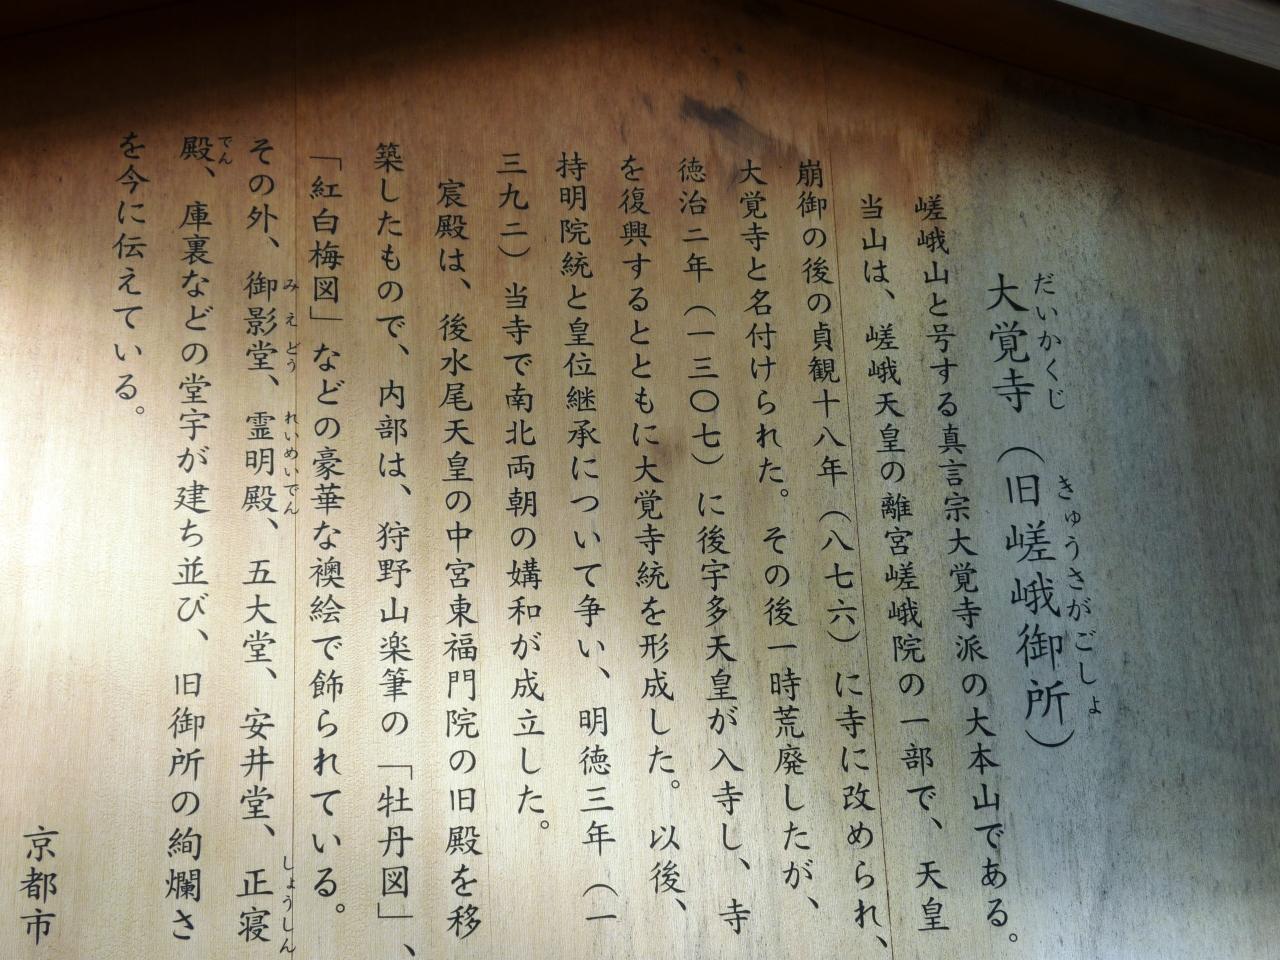 大覚寺（旧嵯峨御所）
だいかくじ きゅうさがごしょ
嵯峨山と号する真言宗大覚寺派の大本山である。
当山は、嵯峨天皇の離宮嵯峨院の一部で、天皇
崩御の後の貞観十八年（八七六）に寺に改められ、
大覚寺と名付けられた。その後一時荒廃したが、
徳治二年（一三〇七）に後宇多天皇が入寺し、寺
を復興するとともに大覚寺統を形成した。以後、
持明院統と皇位継承について争い、明徳三年（一
三九二）当寺で南北両朝の媾和が成立した。
宸殿は、後水尾天皇の中宮東福門院の旧殿を移
築したもので、内部は、狩野山楽筆の「牡丹図」、
「紅白梅図」などの豪華な襖絵で飾られている。
その外、御影堂、霊明殿、五大堂、安井堂、正寝
みえどう れいめいでん しょうしん
殿、庫裏などの堂宇が建ち並び、旧御所の絢爛さ
でん
を今に伝えている。
京都市